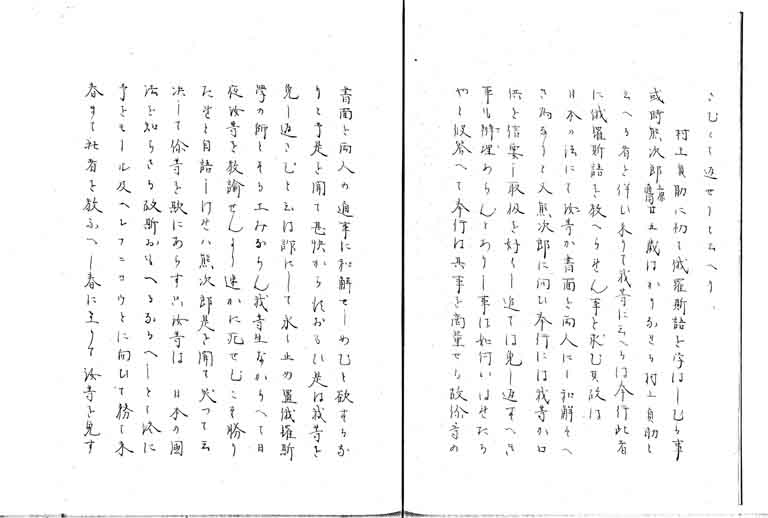 さむとて返せりと云へり、
村上貞助に初て俄羅斯語を学はしむる事
或時熊次郎上原廿五歳はかりなる村上貞助と
云へる者を伴ひ来りて我等に云へらは今行此者
に俄羅斯語を教へらせん事を求む其故は
日本の法にて汝等か書面を両人にし和解そへ
さる為なりと又熊次郎に問ひ奉行には我等か口
供を信要し取扱を好くし追ては免し返すへき
事も辨理あらんとありし事は如何いはせたる
やと彼答へて奉行は其事を商量せる故你等の
書面を両人の通事に和解せしめむと欲するな
りと予是を聞て甚快からすおもい是は我等を
免し返さむと云は詐にして永く止め置俄羅斯
学の師とする工みならん我等生なからへて日
夜汝等を教諭せんより速かに死せむこそ勝り
たせと自語しけせハ熊次郎是を聞て笑つて云
决して你等を欺にあらす只汝等は 日本の国
法を知らさる故斯おもへるなるへしとて終に
予をモール及ヘレフニコウとに向ひて勝て来
春まて社者を教ふへし春に至りて汝等を免す